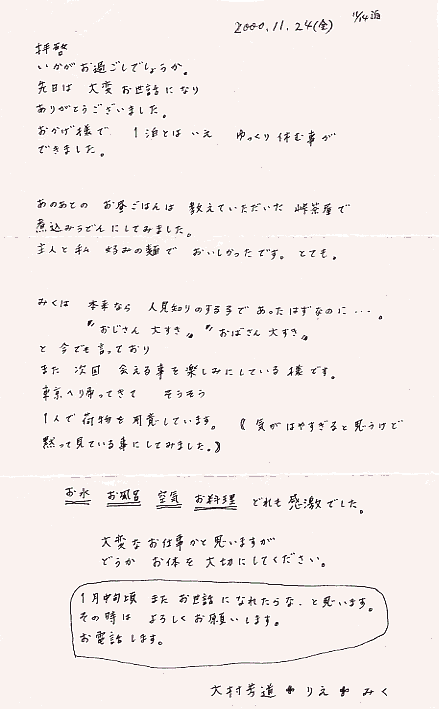 11/14泊
2000.11.24(金)
拝啓
いかがお過ごしでしょうか。
先日は 大変 お世話になり
ありがとうございました。
おかげ様で 1泊とはいえ ゆっくり休む事が
できました。
あのあとの お昼ごはんは 教えていただいた 峠茶屋で
煮込みうどんにしてみました。
主人と私 好みの麺で おいしかったです。とても。
みくは 本来なら 人見知りのする子であったはずなのに・・・。
〃おじさん 大すき〃 〃おばさん 大すき〃
と 今でも言っており
また 次回 会える事を楽しみにしている様です。
東京へ帰ってきて そうそう
1人で荷物を用意しています。《気がはやすぎると思うけど
黙って見ている事にしてみました。》
お水 お風呂 空気 お料理 どれも感激でした。
大変なお仕事かと思いますが
どうか お体を大切にしてください。
1月中旬頃 また お世話になれたらな、と思います。
その時は よろしくお願いします。
お電話します。
大村芳道 りえ みく